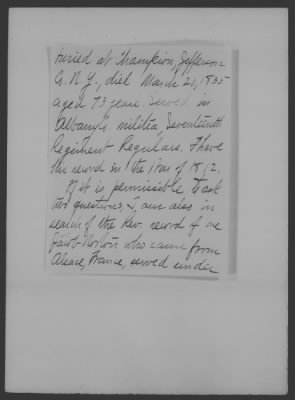 buried at Champion, Jefferson
Co. N.Y., died March 20, 1835
aged 73 years. Served in
Albany Co. militia, Seventeenth
Regiment Regulars. I have
the record in the War of 1812.
If it is permissible to ask
two questions, I am also in
search of the Rev. record of one
Jacob who came from
Alsace, France, served under